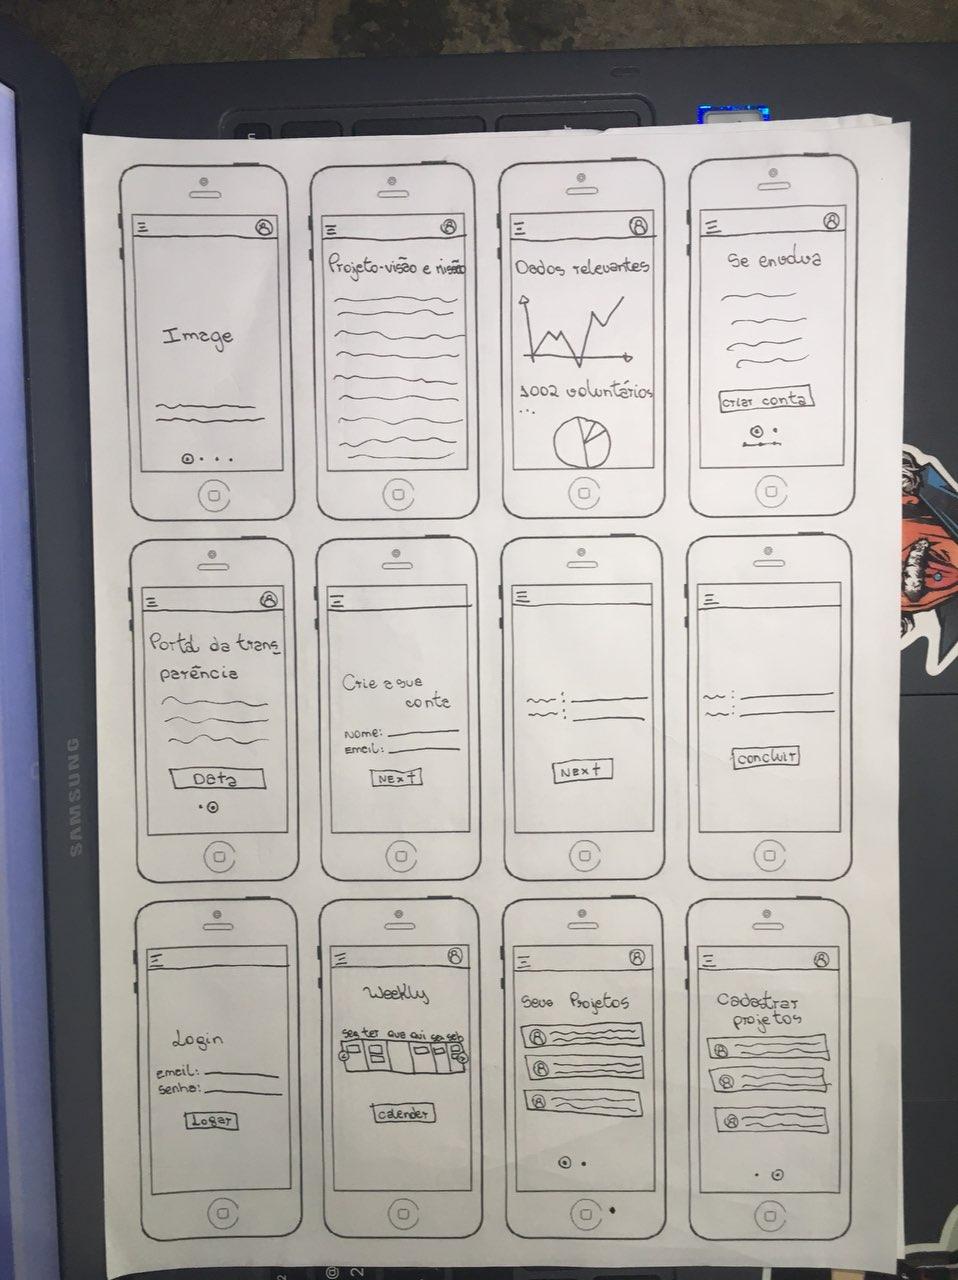 Image
Projeto-visão e missão
Dados relevantes
1002 voluntários
...
Se envolva
Criar conta
Portal da trans_
parência
Data
Crie a sua
conta
Nome:
Email:
Next
Next
Concluir
Login
email:
senha:
Logar
Weekly
seg ter qua qui sex sab
calender
Seus Projetos
Cadastrar
projetos
SAMSUNG